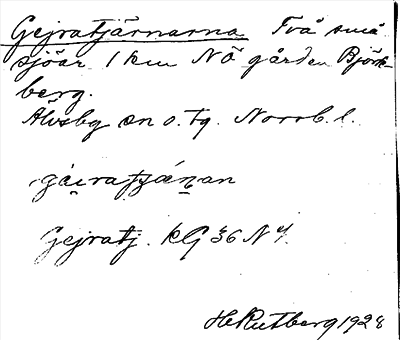 Gejratjärnarna Två små
sjöar 1 km NÖ gården Björk-
berg.
Älvsby sn o. tg. Norrb. l.
Gejratj. kG 36 N4
H. Rutberg 1928